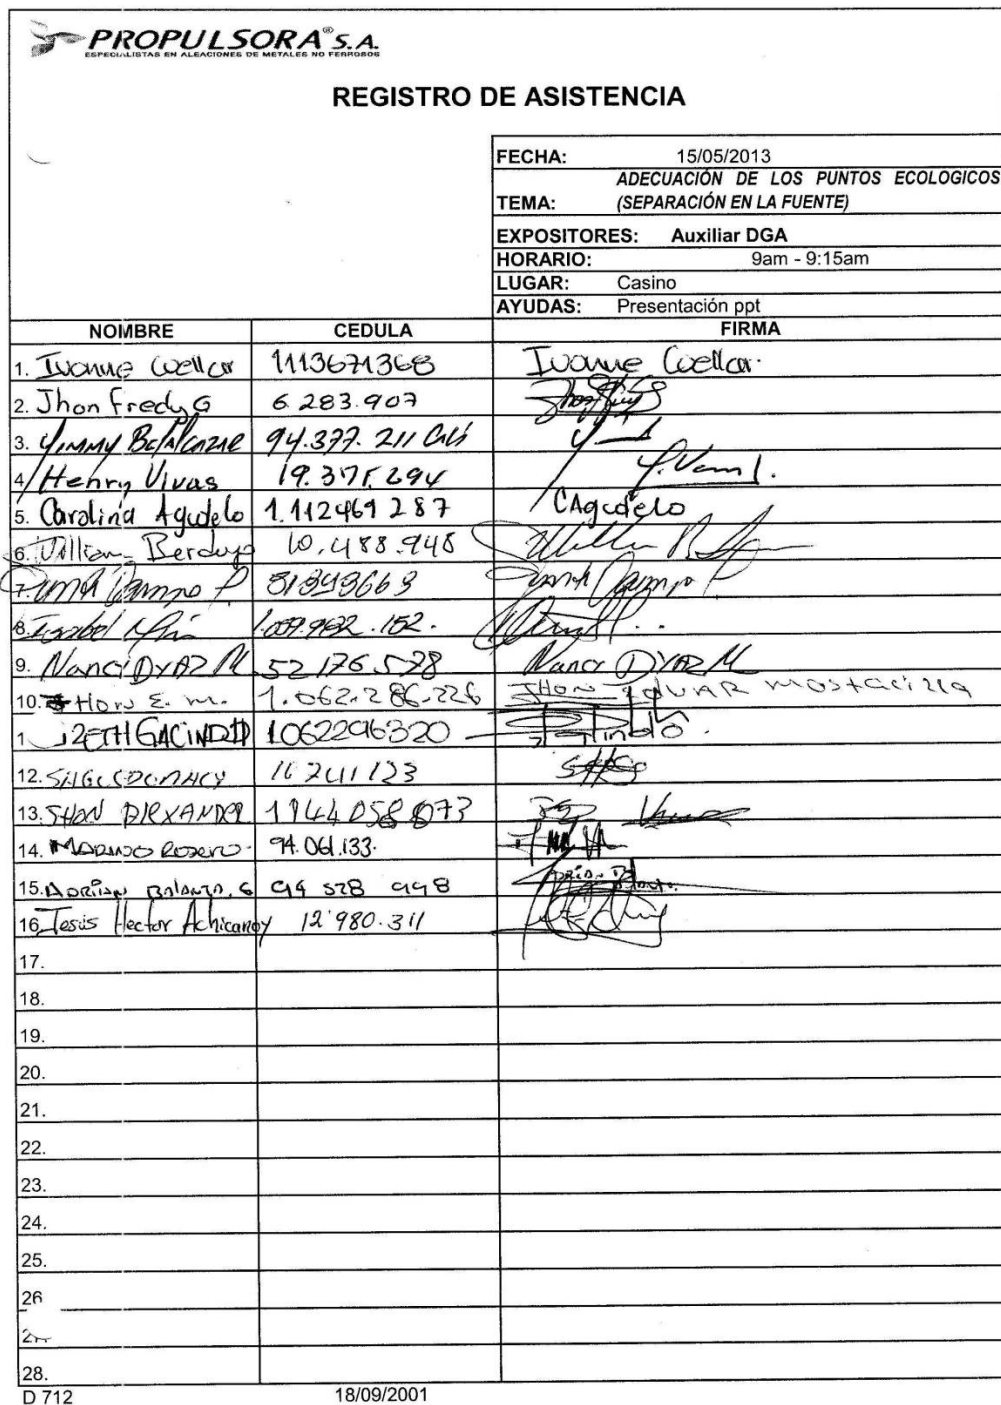 PROPULSORA® S.A.
ESPECIALISTAS EN ALEACIONES DE METALES NO FERROSOS
REGISTRO DE ASISTENCIA
FECHA: 15/05/2013
TEMA: ADECUACIÓN DE LOS PUNTOS ECOLOGICOS
(SEPARACIÓN EN LA FUENTE)
EXPOSITORES: Auxiliar DGA
HORARIO: 9am - 9:15am
LUGAR: Casino
AYUDAS: Presentación ppt
NOMBRE CEDULA FIRMA
1. Ivonne Cuellar 1113671368 Ivonne Cuellar
2. Jhon Fredy G 6.283.907
3. Yimmy Belalcazar 94.377.211 Cali
4. Henry Vivas 19.371.294
5. Carolina Agudelo 1.112461287 CAgudelo
6. William Berdugo 10.488.948
7. Ocampo P
8. Isabel
9. Nancy DYAZ M 52176578 Nancy DYAZ M
10. JHON E. m. 1.062.286.226 JHON EDUAR mostacilla
1 1062296320
12.
13. JHON ALEXANDER 1144058073
14. MARINO ROSERO. 94.061.133.
15. ADRIAN BALANTA. G 94 528 998
16. Jesus Hector Achicanoy 12'980.311
17.
18.
19.
20.
21.
22.
23.
24.
25.
26
28.
D 712 18/09/2001